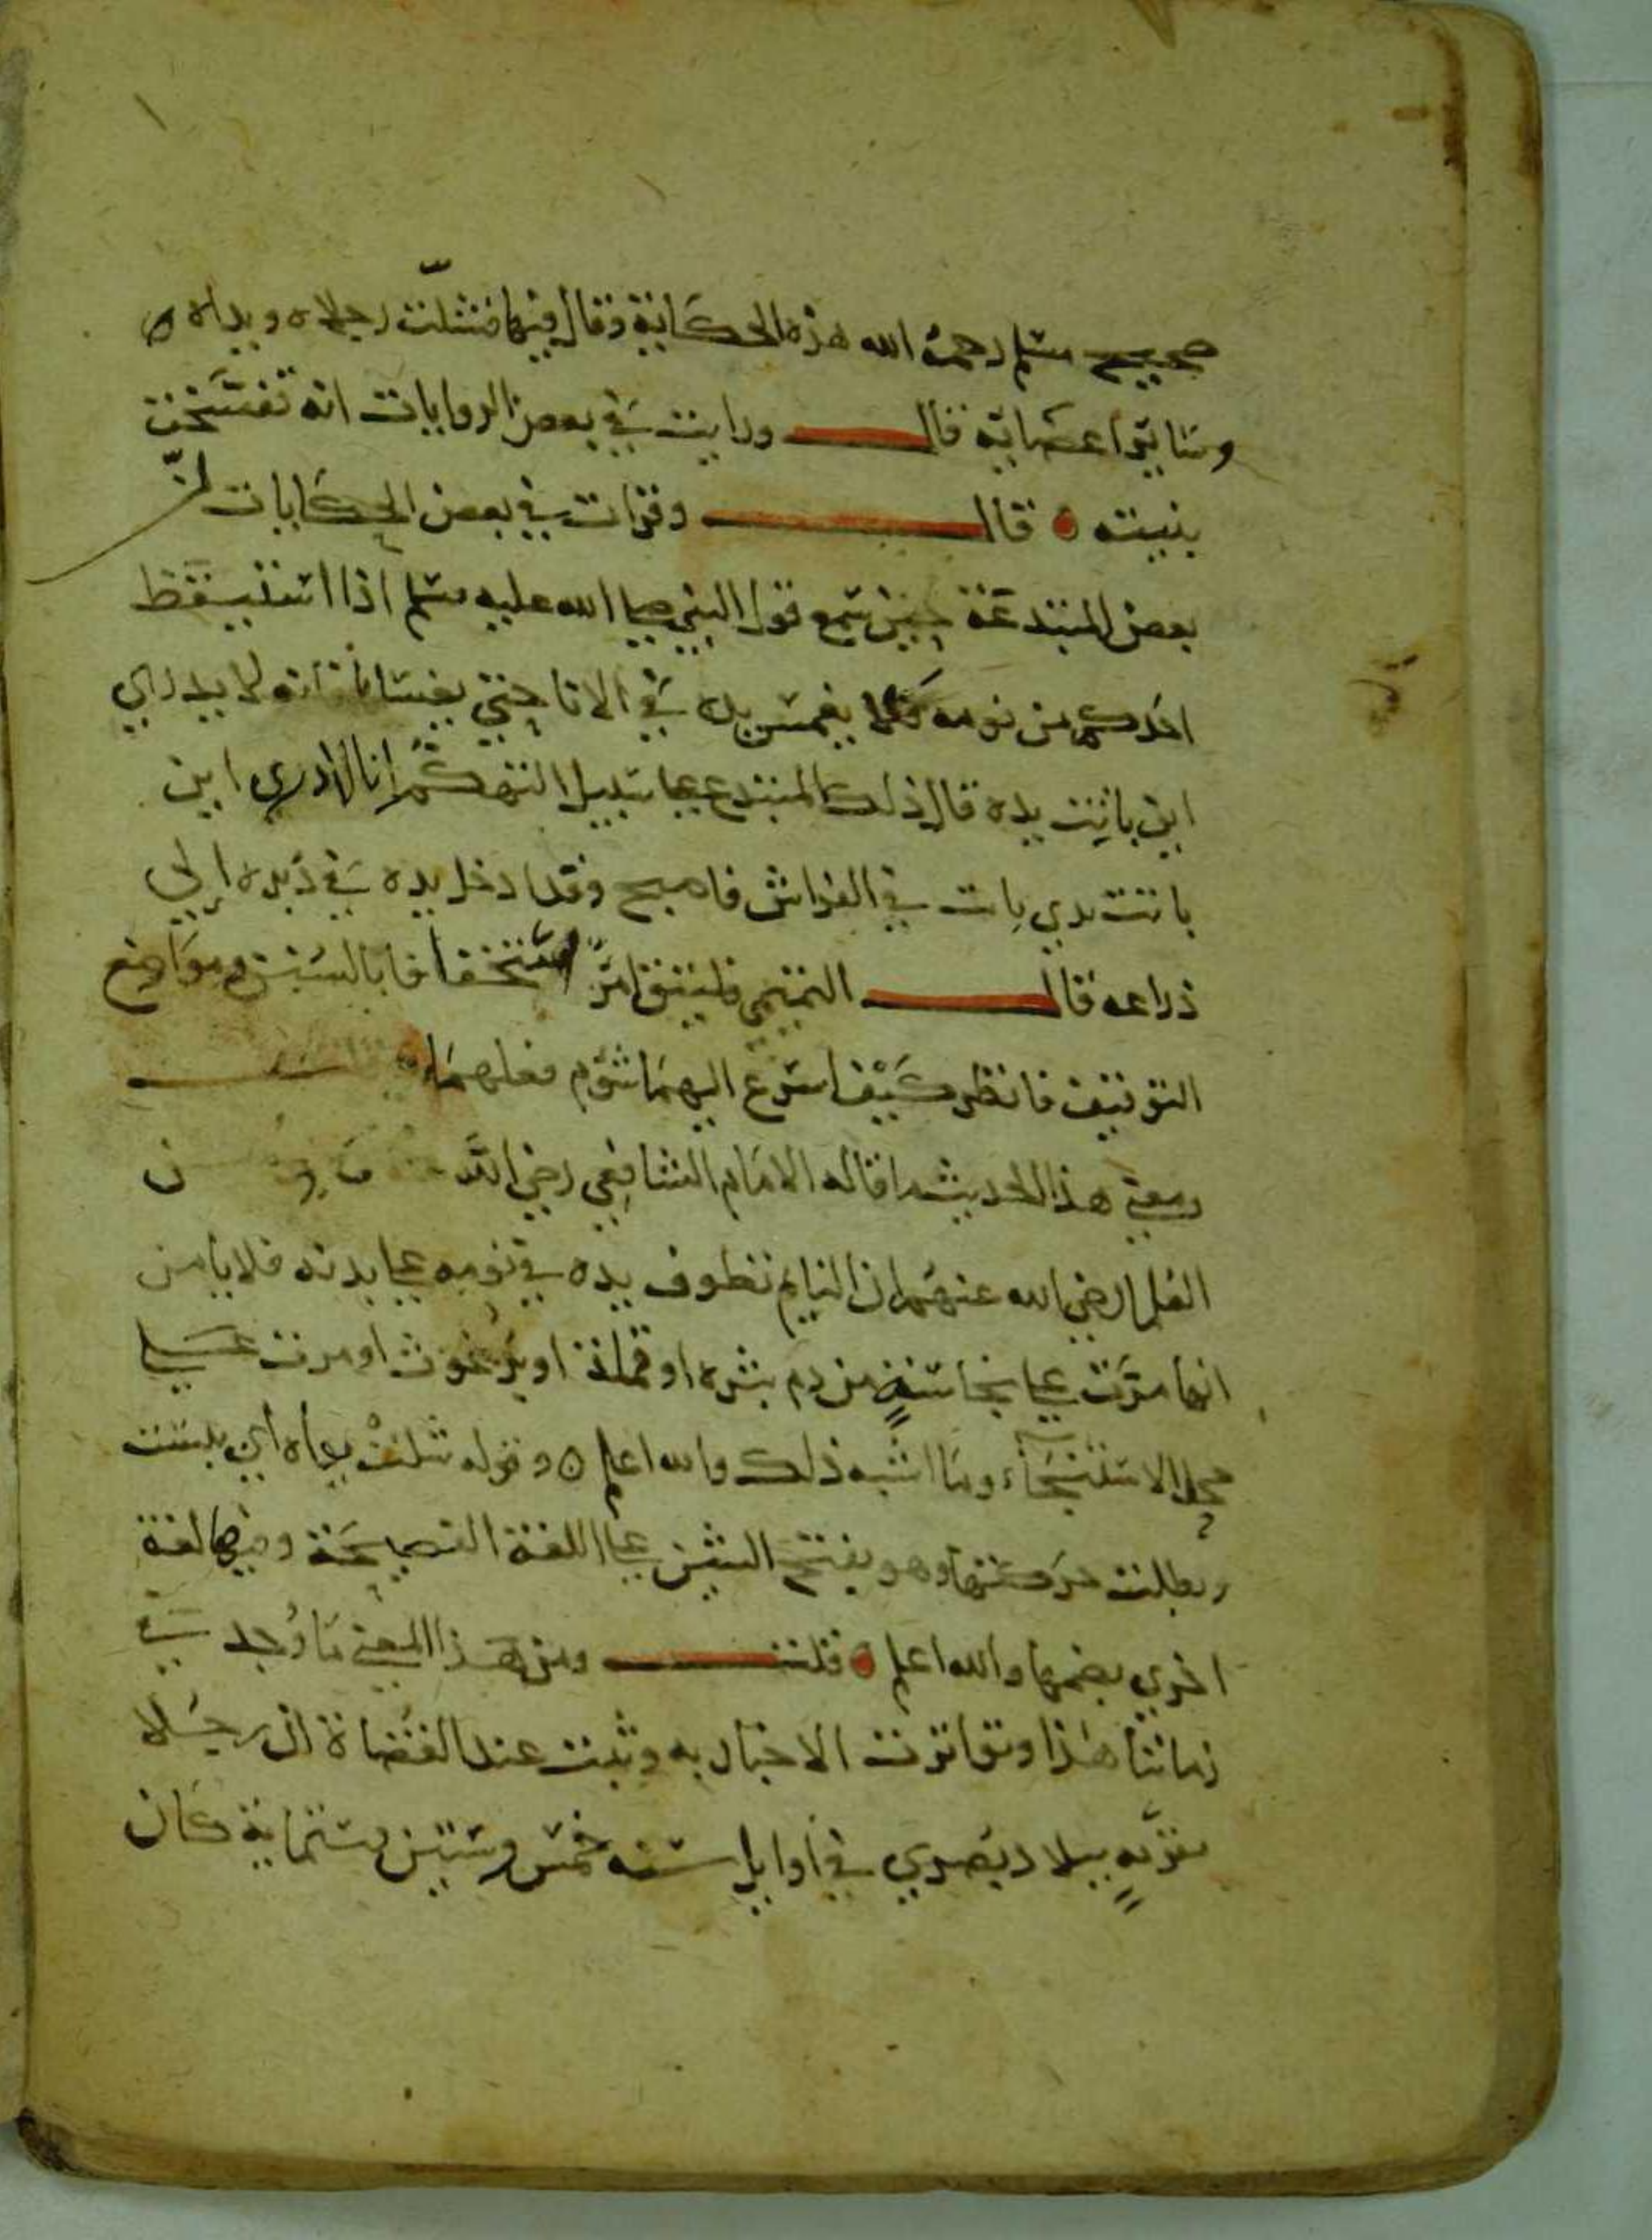 صحيح مسلم رحمه الله هذه الحكاية وقال فيها فشلّت رجلاه ويداه
وسائر اعضائه قال ورايت في بعض الروايات انه تفسّخت
بنيته قال وقرات في بعض الحكايات ان
بعض المبتدعة حين سمع قول النبي صلى الله عليه وسلم اذا استيقظ
احدكم من نومه فلا يغمس يده في الانا حتي يغسلها فانه لا يدري
اين باتت يده قال ذلك المبتدع على سبيل التهكم انا ادري اين
باتت يدي باتت في الفراش فاصبح وقد ادخل يده في دبره الي
ذراعه قال التيمي فليتق المرء استخفافا بالسنن ومواضع
التوقيف فانظر كيف اسرع اليهما شؤم فعلهما
ومعنى هذا الحديث ما قاله الامام الشافعي رضي الله
العلما رضي الله عنهم ان النايم تطوف يده في نومه على بدنه فلا يامن
انها مرّت على نجاسةٍ من دم بثره او قملة او برغوث او مرت على
محل الاستنجاء وما اشبه ذلك والله اعلم ه وقوله شلت يداه اي يبست
وبطلت حركتها وهو بفتح الشين على اللغة الفصيحة وفيها لغة
اخري بضمها والله اعلم قلت ومن هذا المعنى ما وُجد في
زماننا هذا وتواترت الاخبار به وثبت عند القضاة ان رجلا
بقريةٍ ببلاد بصري في اوايل سنه خمس وستين وستماية كان